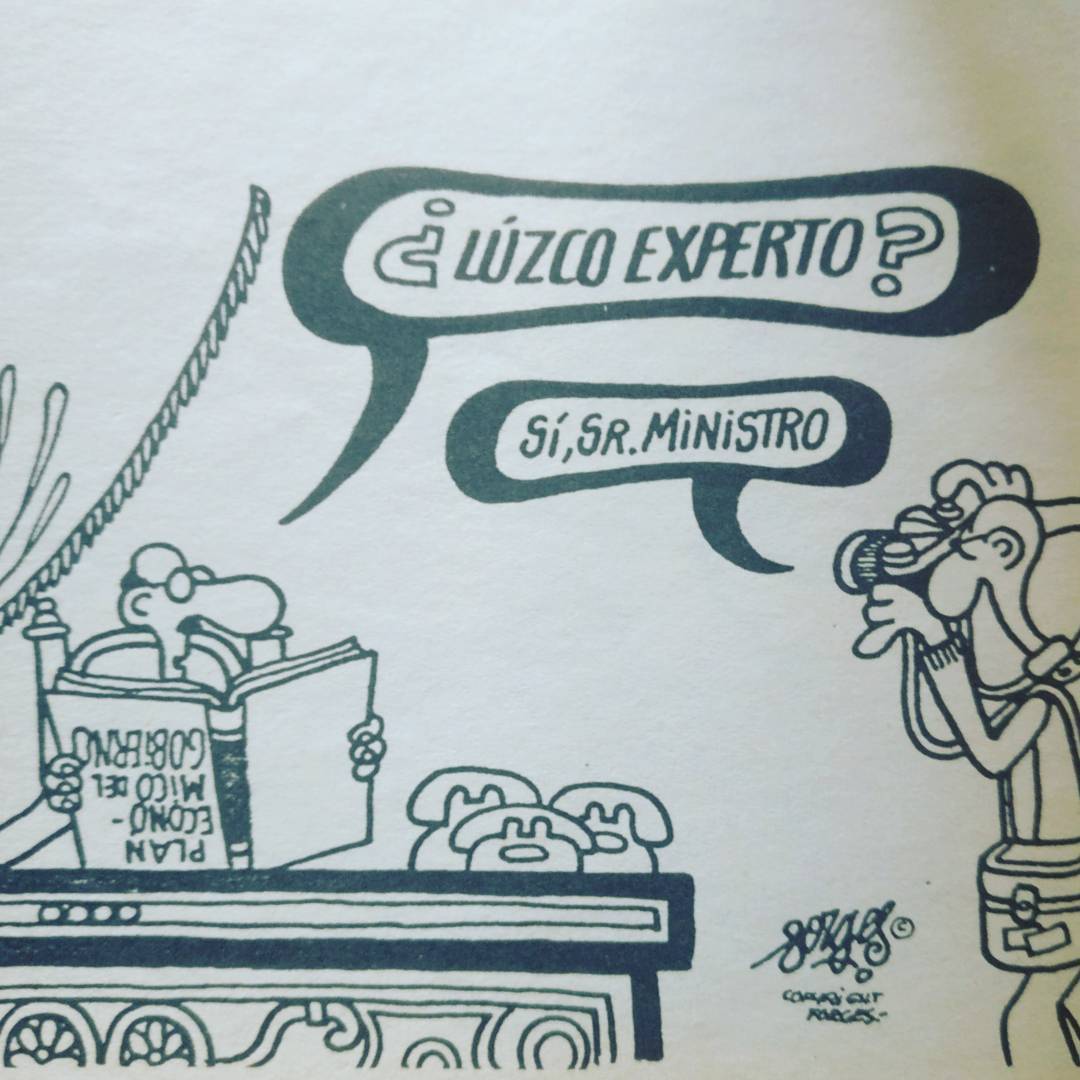 ¿LÚZCO EXPERTO?
SÍ, SR. MINISTRO
PLAN
ECONÓ-
MICO DEL
GOBIERNO
forges ©
COPYRIGHT
FORGES.-